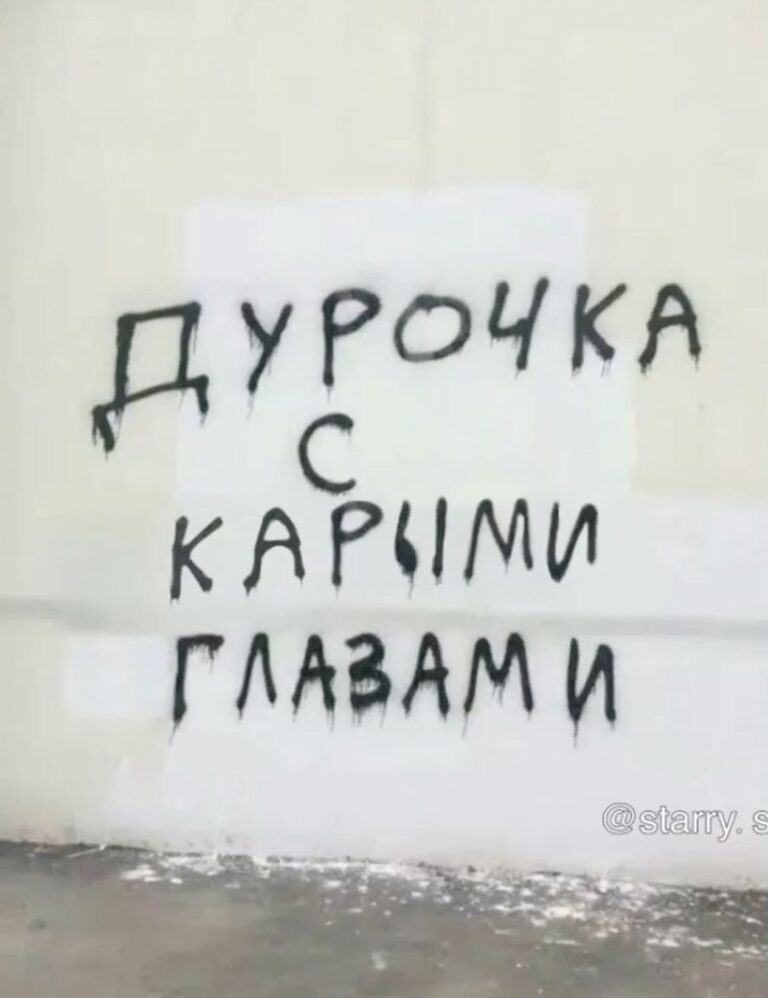 ДУРОЧКА
С
КАРЫМИ
ГЛАЗАМИ
@starry.